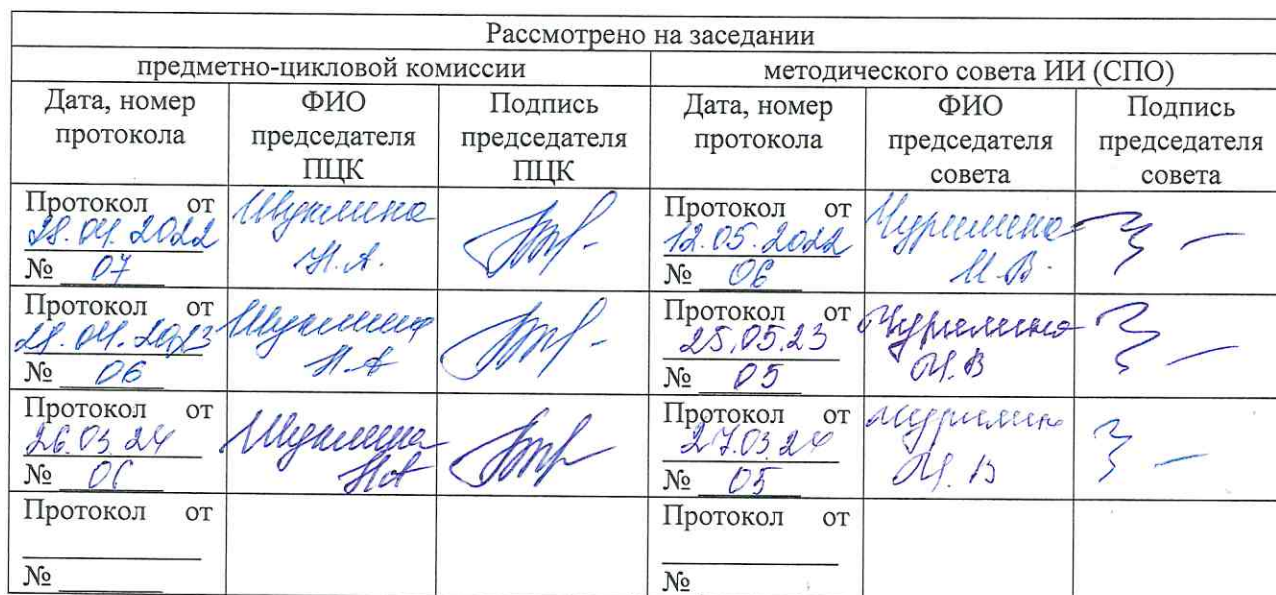 Рассмотрено на заседании
предметно-цикловой комиссии
методического совета ИИ (СПО)
Дата, номер протокола
ФИО председателя ПЦК
Подпись председателя ПЦК
Дата, номер протокола
ФИО председателя совета
Подпись председателя совета
Протокол от
28.04.2022
№ 07
Шуклина
Н.А.
Протокол от
12.05.2022
№ 06
Чурилина
И.В.
Протокол от
28.04.2023
№ 06
Шуклина
Н.А
Протокол от
25.05.23
№ 05
Чурилина
И.В
Протокол от
26.03.24
№ 06
Шуклина
НА
Протокол от
27.03.24
№ 05
И.В
Протокол от
№
Протокол от
№